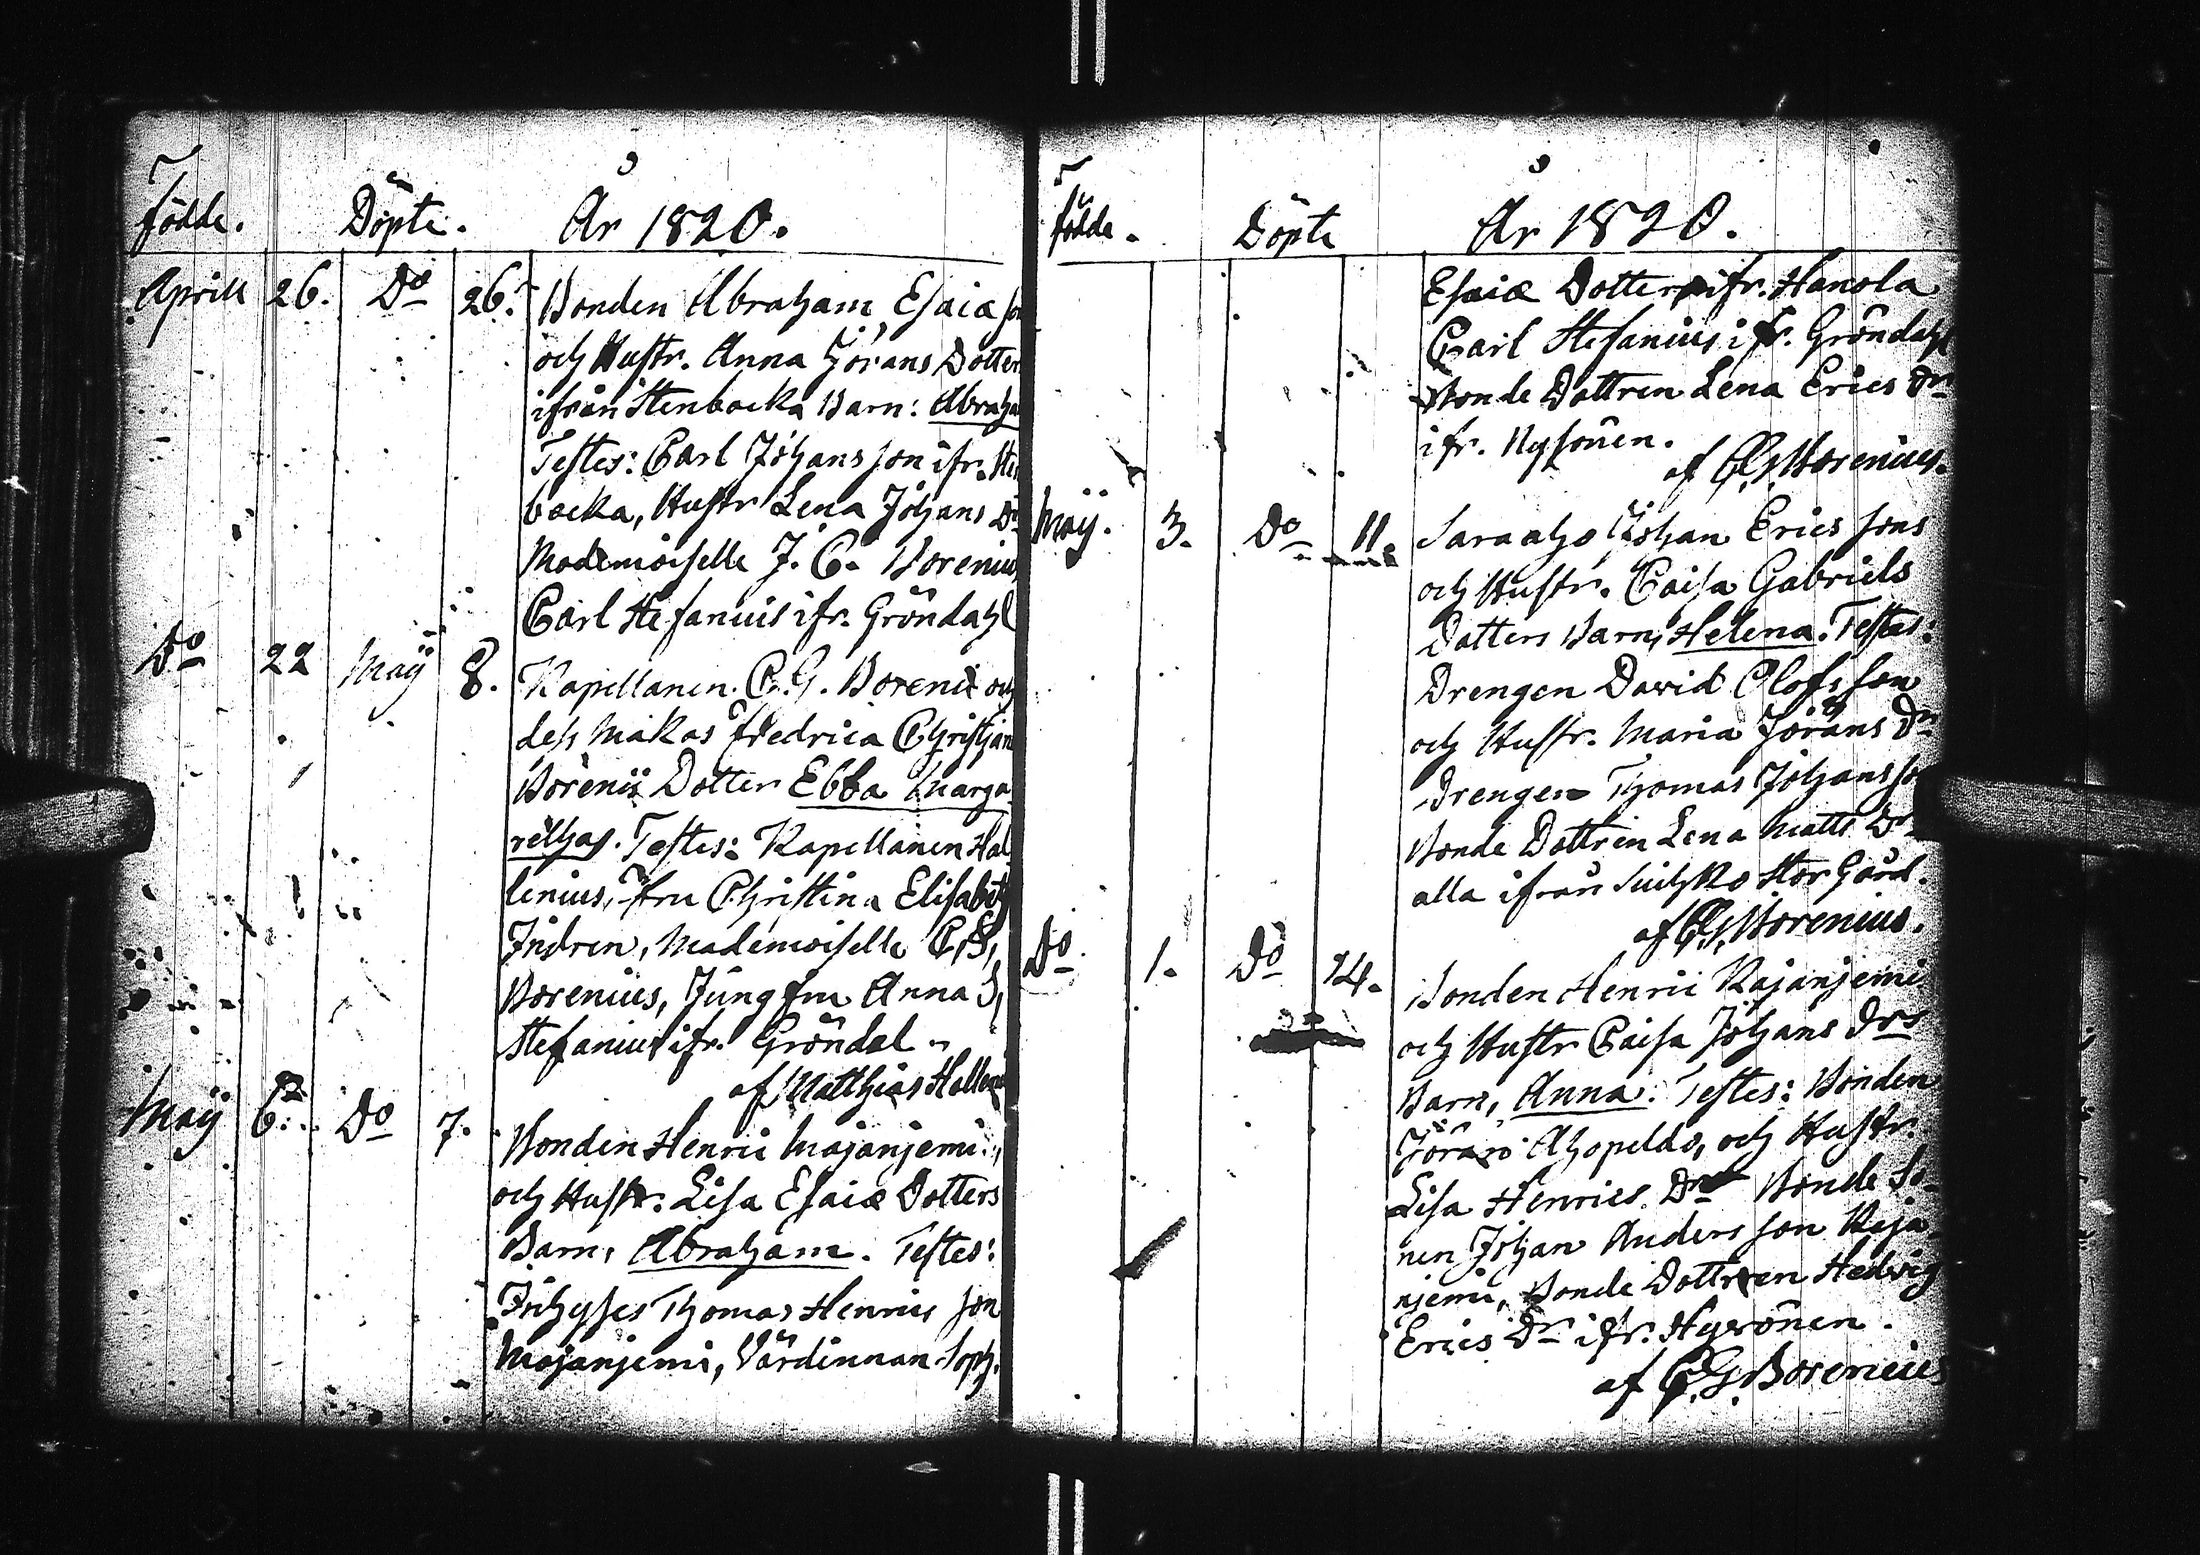 Födde. Döpte. År 1820.
Aprill 26. Do 26. Bonden Abraham Esaiæ son
och Hustr. Anna Jörans Dotter
ifrån Stenbacka Barn: Abraham
Testes: Carl Johansson ifr. Sten
backa, Hustr Lena Johans Dr
Mademoiselle J. C. Borenius
Carl Stefanius ifr. Gröndahl
Do 22 Maij 8. Kapellanen C. G. Borenii och
dess Makas Fredrica Christian
Borenii Dotter Ebba Marga
rethas. Testes: Kapellanen Hal
lenius, Fru Christina Elisabeth
Indren, Mademoiselle
Borenius, Jungfru Anna S,
Stefanius ifr. Gröndal
af Matthias Halleni
Maij 6. Do 7. Bonden Henric Majanjemi.,
och Hustr. Lisa Esaiæ Dotters
Barn, Abraham. Testes:
Inhyses Thomas Henrics son
Majanjemi, Värdinnan Soph.
Födde. Döpte År 1820.
Esaiæ Dotter ifr. Hanola
Carl Stefanius ifr. Gröndahl
Bonde Dottren Lena Erics Dr
ifr. Nysönen.
af C. G. Borenius.
Maij. 3. Do 11. Saraaho Johan Erics sons
och Hustr. Caisa Gabriels
Dotters Barn, Helena. Testes:
Drengen David Olofsson
och Hustr. Maria Jörans Dr
Drengen Thomas Johansson
Bonde Dottren Lena Matts Dr
alla ifrån Suihko Stor Gård.
af C. G. Borenius.
Do 1. Do 14. Bonden Henric Kajanjemi
och Hustr Caisa Johans Drs
Barn, Anna. Testes: Bonden
Jöran Ahopeldo, och Hustr.
Lisa Henrics Dr Bonde So-
nen Johan Andersson Kaja
njemi, Bonde Dottren Hedvig
Erics Dr ifr. Hyvönen.
af C. G. Borenius